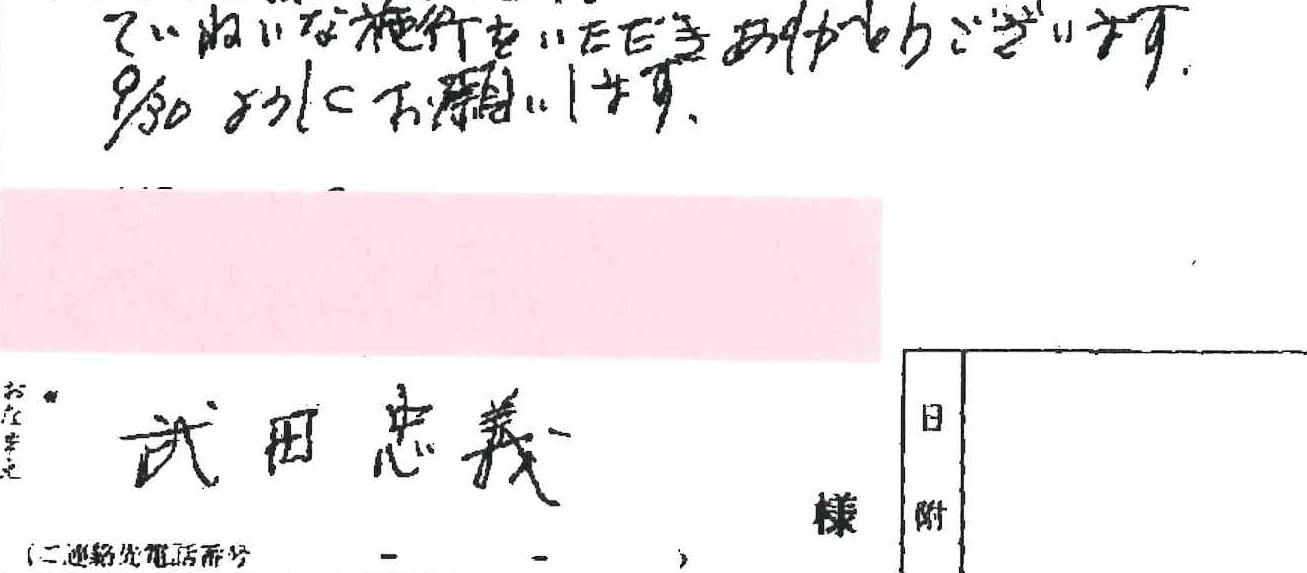 ていねいな施行をいただきありがとうございます.
9/30 よろしくお願いします.
おなまえ 武田忠義 様
(ご連絡先電話番号 - - )
日附